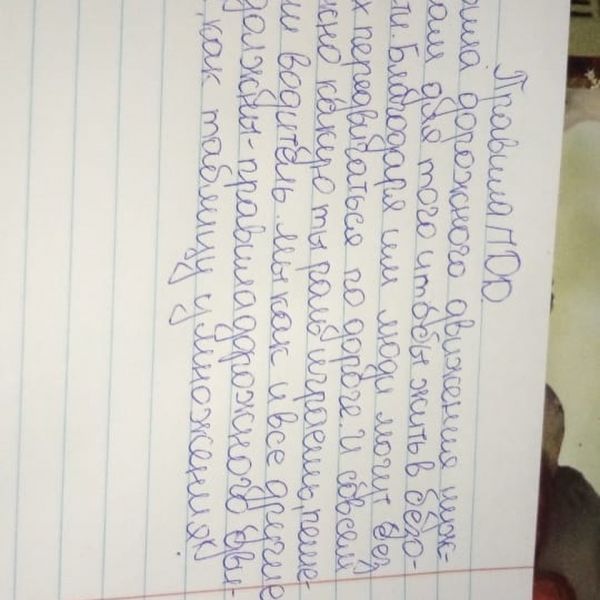 Правила ПДД
вила дорожного движения нуж-
нам для того чтобы жить в безо-
ти. Благодаря им люди могут без
х передвигаться по дороге. И совсем
жно какую ты роль играешь, пеше-
ли водитель. Мы как и все другие
должны правила дрожного дви-
как таблицу умножения